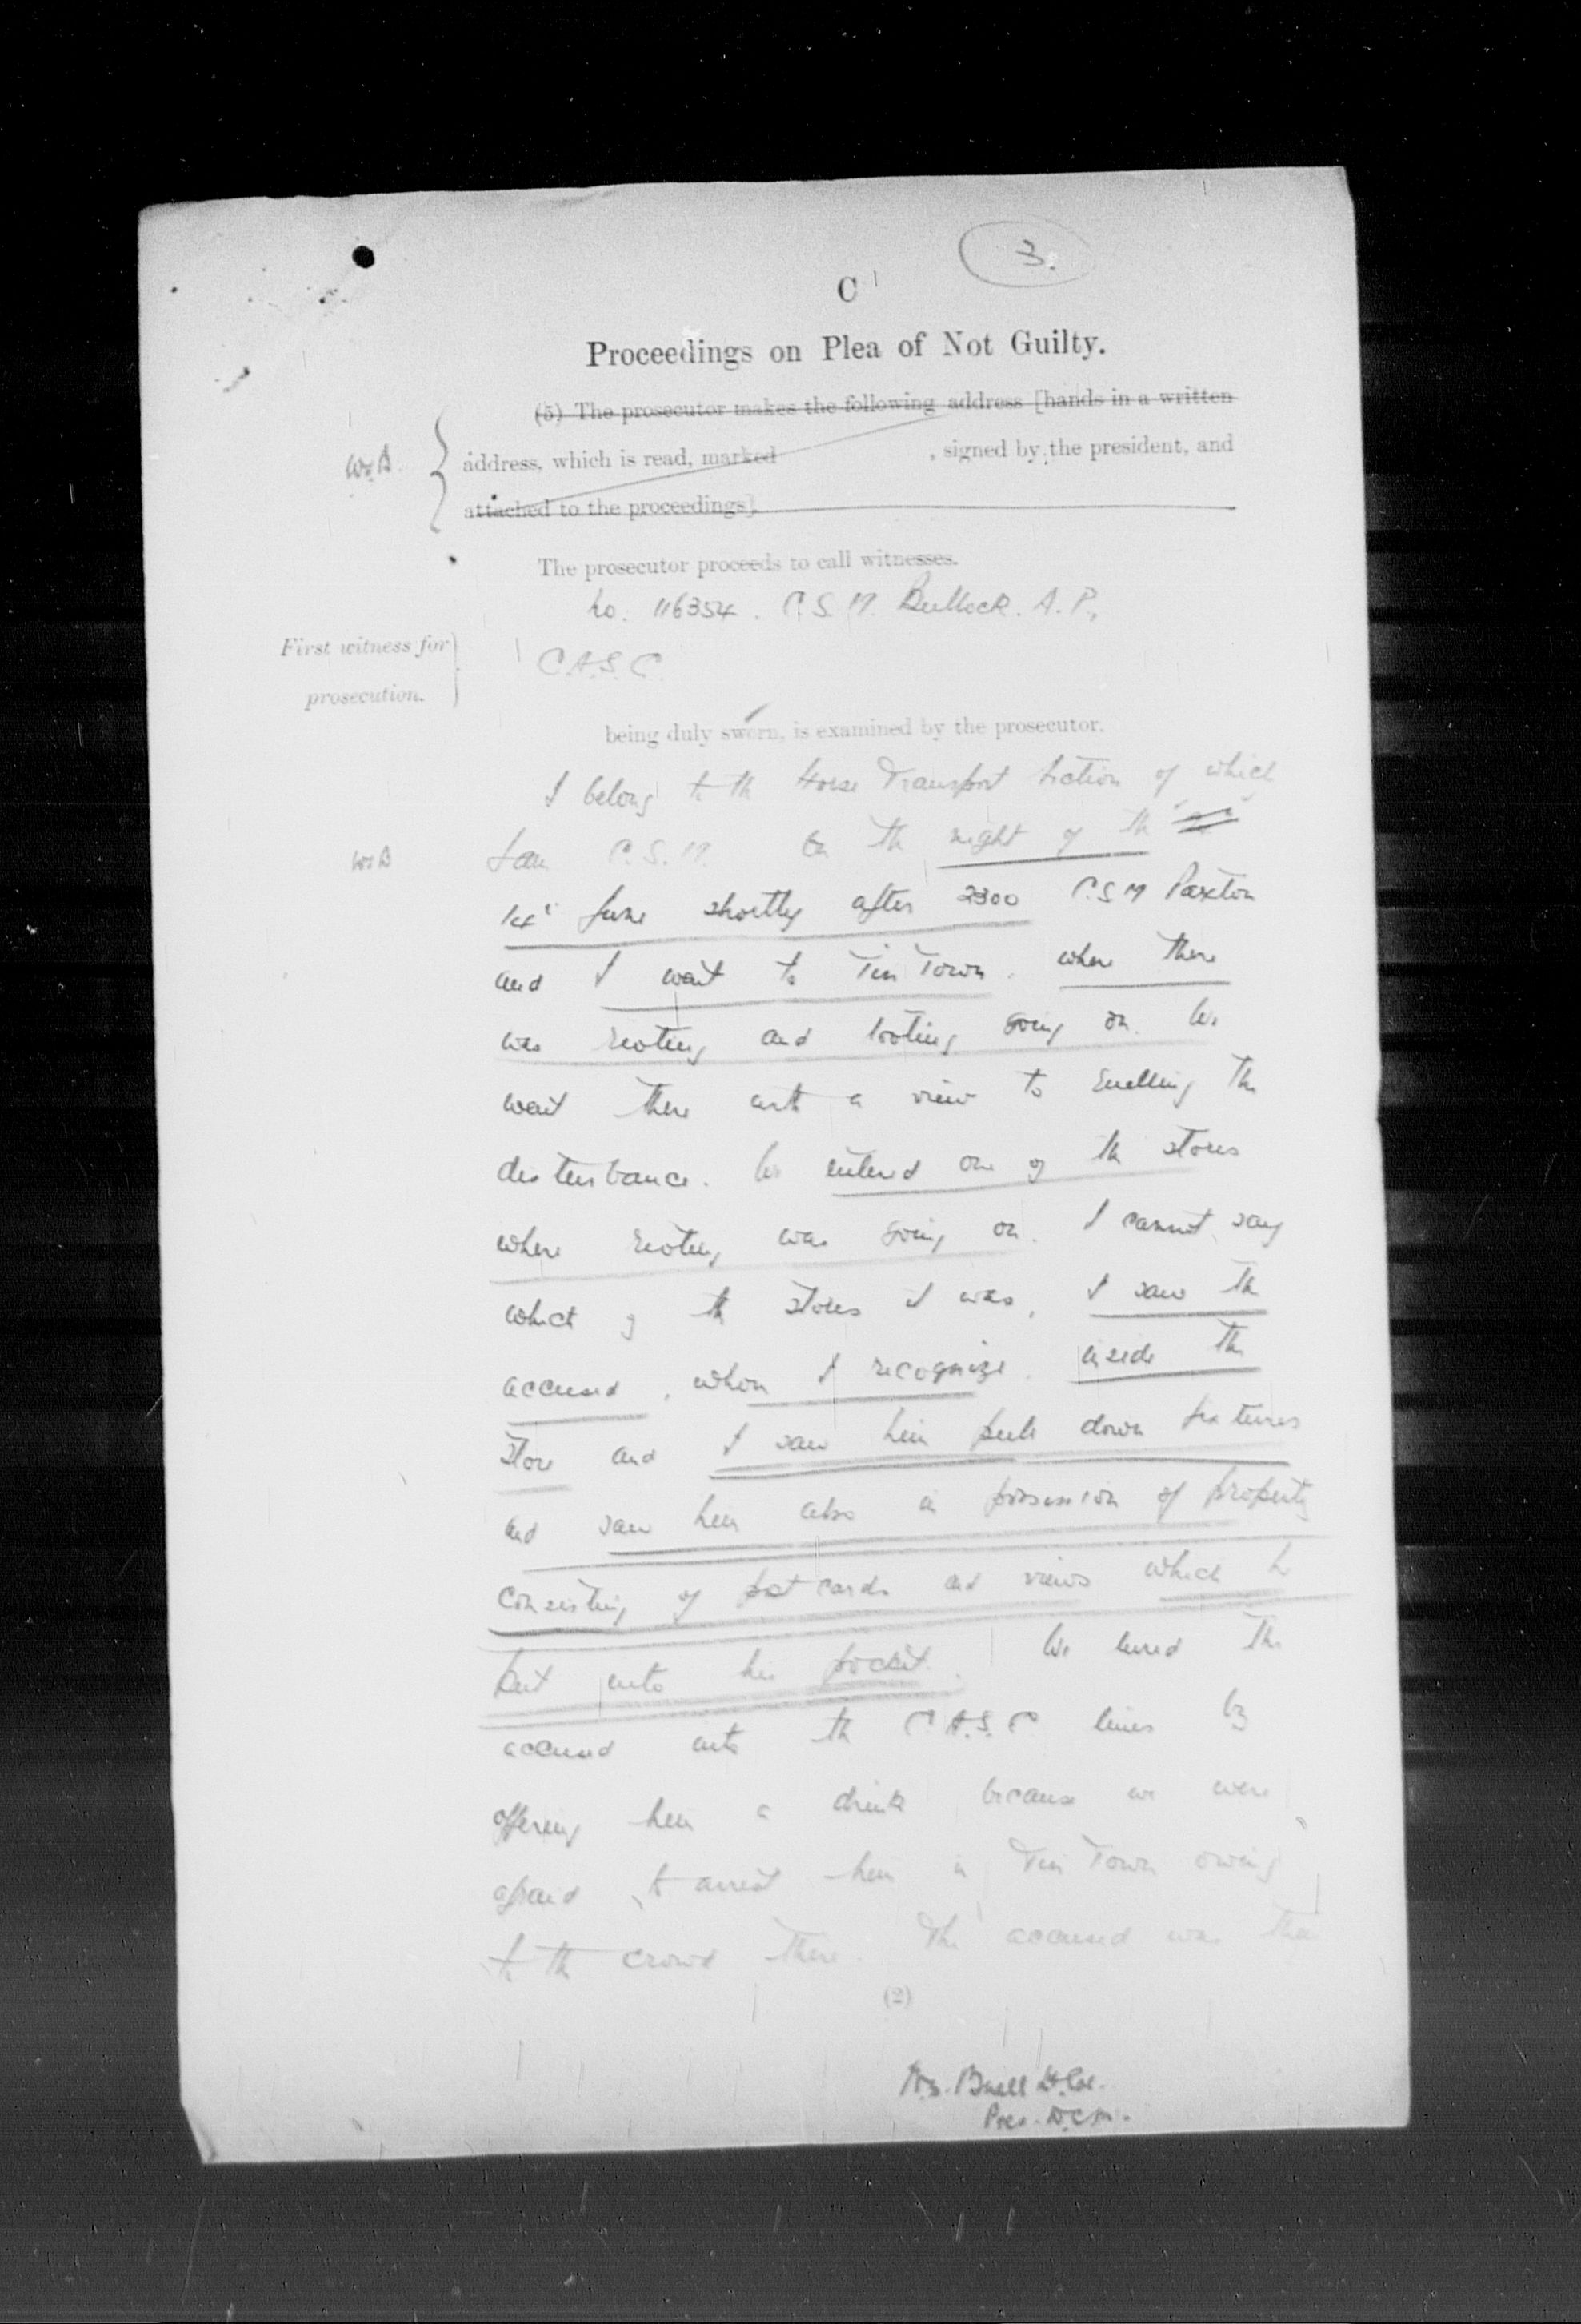 3.
C
Proceedings on Plea of Not Guilty.
(5) The prosecutor makes the following address [hands in a written
address, which is read, marked , signed by the president, and
attached to the proceedings].
W.B.
The prosecutor proceeds to call witnesses.
No. 116354. C.S.M. Bullock. A.P.,
First witness for
prosecution.
C.A.S.C.
being duly sworn, is examined by the prosecutor.
I belong to the Horse Transport Section of which
W.B
I am C.S.M. On the night of the
14th June shortly after 2300 C.S.M Paxton
and I went to Tin Town. where there
was rioting and looting going on. We
went there with a view to quelling the
disturbance. We entered one of the stores
where rioting was going on. I cannot say
which of the stores it was, I saw the
accused, whom I recognize. inside the
store and I saw him pull down fixtures
and saw him also in possession of property
consisting of post cards and views which he
put into his pocket. We lured the
accused into the C.A.S.C lines by
offering him a drink because we were
afraid to arrest him in Tin Town owing
to the crowd there. The accused was then
(2)
Buell Lt. Col.
Pres. D.C.M.